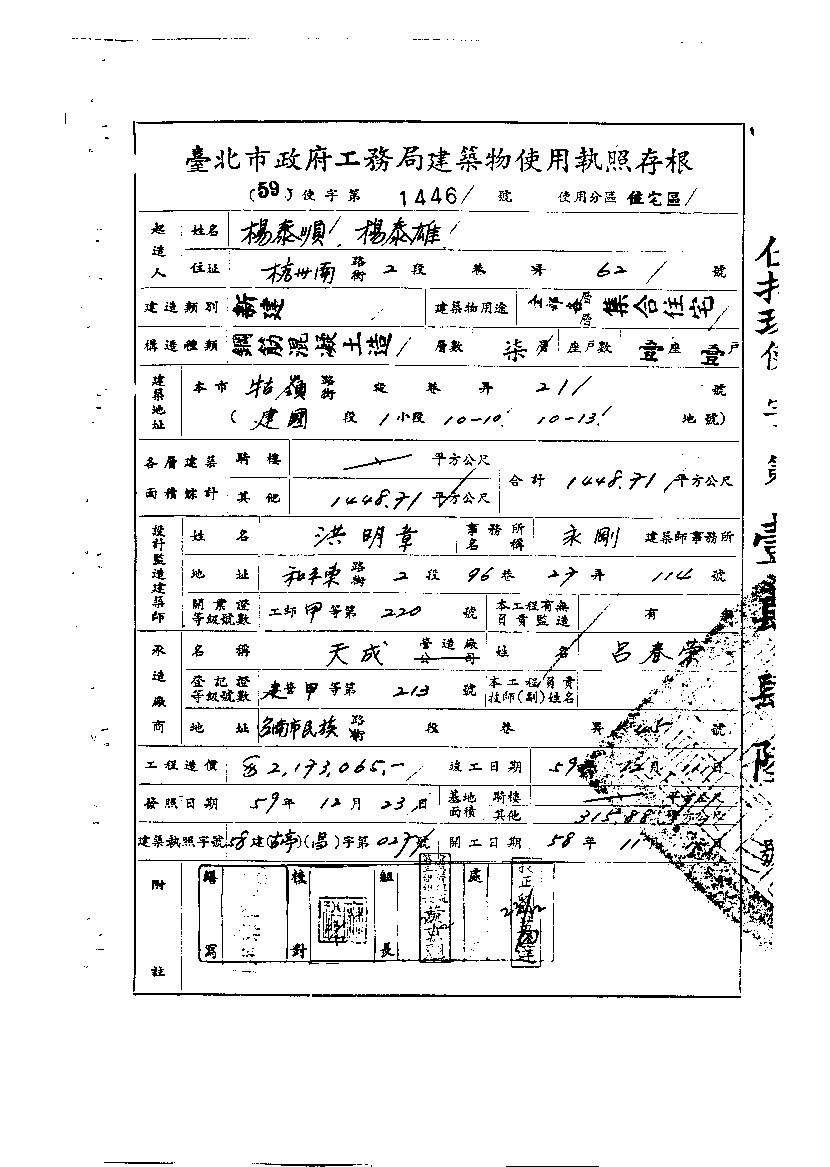 臺北市政府工務局建築物使用執照存根
(59)使字第 1446 號 使用分區 住宅區
起造人 姓名 楊泰順、楊泰雄
住址 杭州南 路街 2 段 巷 弄 62 號
建造類別 新建 建築物用途 層層 集合住宅
構造種類 鋼筋混凝土造 層數 柒層 座戶數 座 戶
建築地址 本市 牯嶺 路街 段 巷 弄 21 號
(建國 段 1 小段 10-10 10-13 地號)
各層建築面積總計 騎樓 平方公尺 合計 1448.71 平方公尺
其他 1448.71 平方公尺
設計監造建築師 姓名 洪明章 事務所名稱 永剛 建築師事務所
地址 和平東 路街 2 段 96 巷 27 弄 114 號
開業證等級號數 工師 甲 等第 220 號 本工程有無負責監造 有 無
承造廠商 名稱 天成 營造廠公司 姓名 呂春榮
登記證等級號數 營 甲 等第 213 號 本工程負責技師(副)姓名
地址 台南市民族 路街 段 巷 弄 號
工程造價 $2,173,065.- 竣工日期 59年 12月 11日
發照日期 59年 12月 23日 基地面積 騎樓 平方公尺
其他 315.88 平方公尺
建築執照字號 58 建(古亭)(昌)字第 027 號 開工日期 58年 11月 日
附註 繕寫 校對 組長 處
使字第壹肆肆陸號